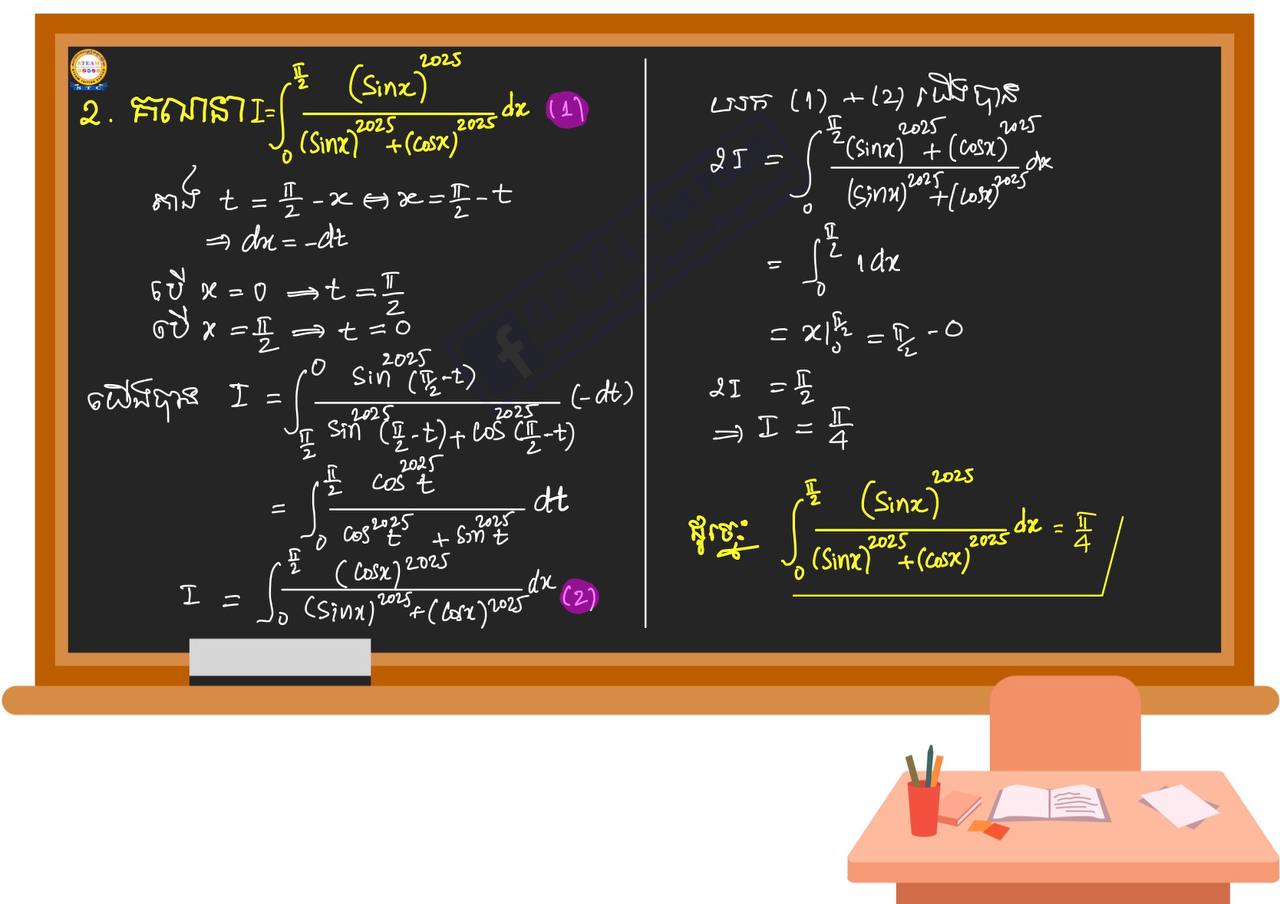 2. គណនា I = ∫₀^(π/2) (sinx)^2025 / ((sinx)^2025 + (cosx)^2025) dx (1)
តាង t = π/2 - x ⇔ x = π/2 - t
⇒ dx = -dt
បើ x = 0 ⟹ t = π/2
បើ x = π/2 ⟹ t = 0
យើងបាន I = ∫_(π/2)^0 sin^2025(π/2 - t) / (sin^2025(π/2 - t) + cos^2025(π/2 - t)) (-dt)
= ∫₀^(π/2) cos^2025 t / (cos^2025 t + sin^2025 t) dt
I = ∫₀^(π/2) (cosx)^2025 / ((sinx)^2025 + (cosx)^2025) dx (2)
យក (1) + (2) យើងបាន
2I = ∫₀^(π/2) ((sinx)^2025 + (cosx)^2025) / ((sinx)^2025 + (cosx)^2025) dx
= ∫₀^(π/2) 1 dx
= x|₀^(π/2) = π/2 - 0
2I = π/2
⟹ I = π/4
ដូចនេះ: ∫₀^(π/2) (sinx)^2025 / ((sinx)^2025 + (cosx)^2025) dx = π/4